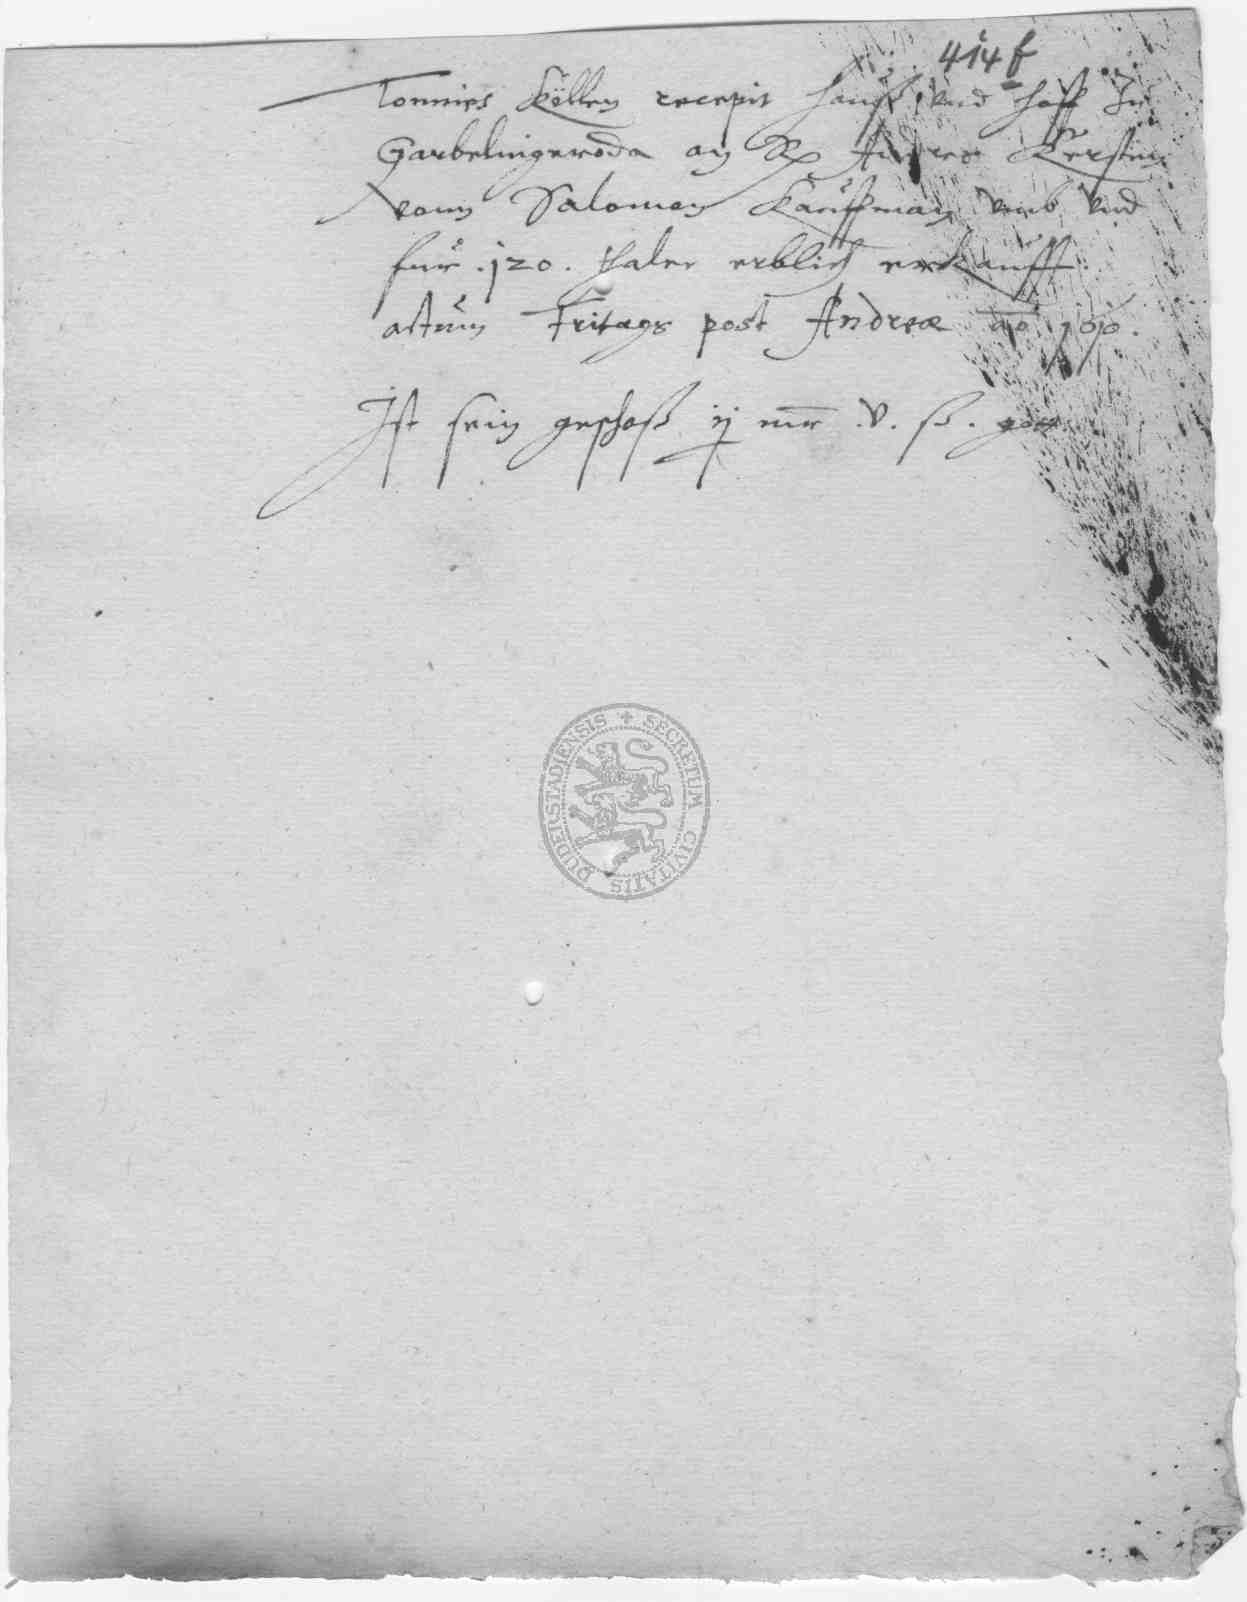 414 f
Tonnies Köllen recepit hauß vnd hoff In
Garbelingeroda an Andres Kersten
vonn Salomon Kauffman vmb vnd
fur .120. thaler erblich erkaufft
actum Fritags post Andreæ ao
Ist sein geschoß ij mr .v. ß.
SECRETUM CIVITATIS DUDERSTADIENSIS